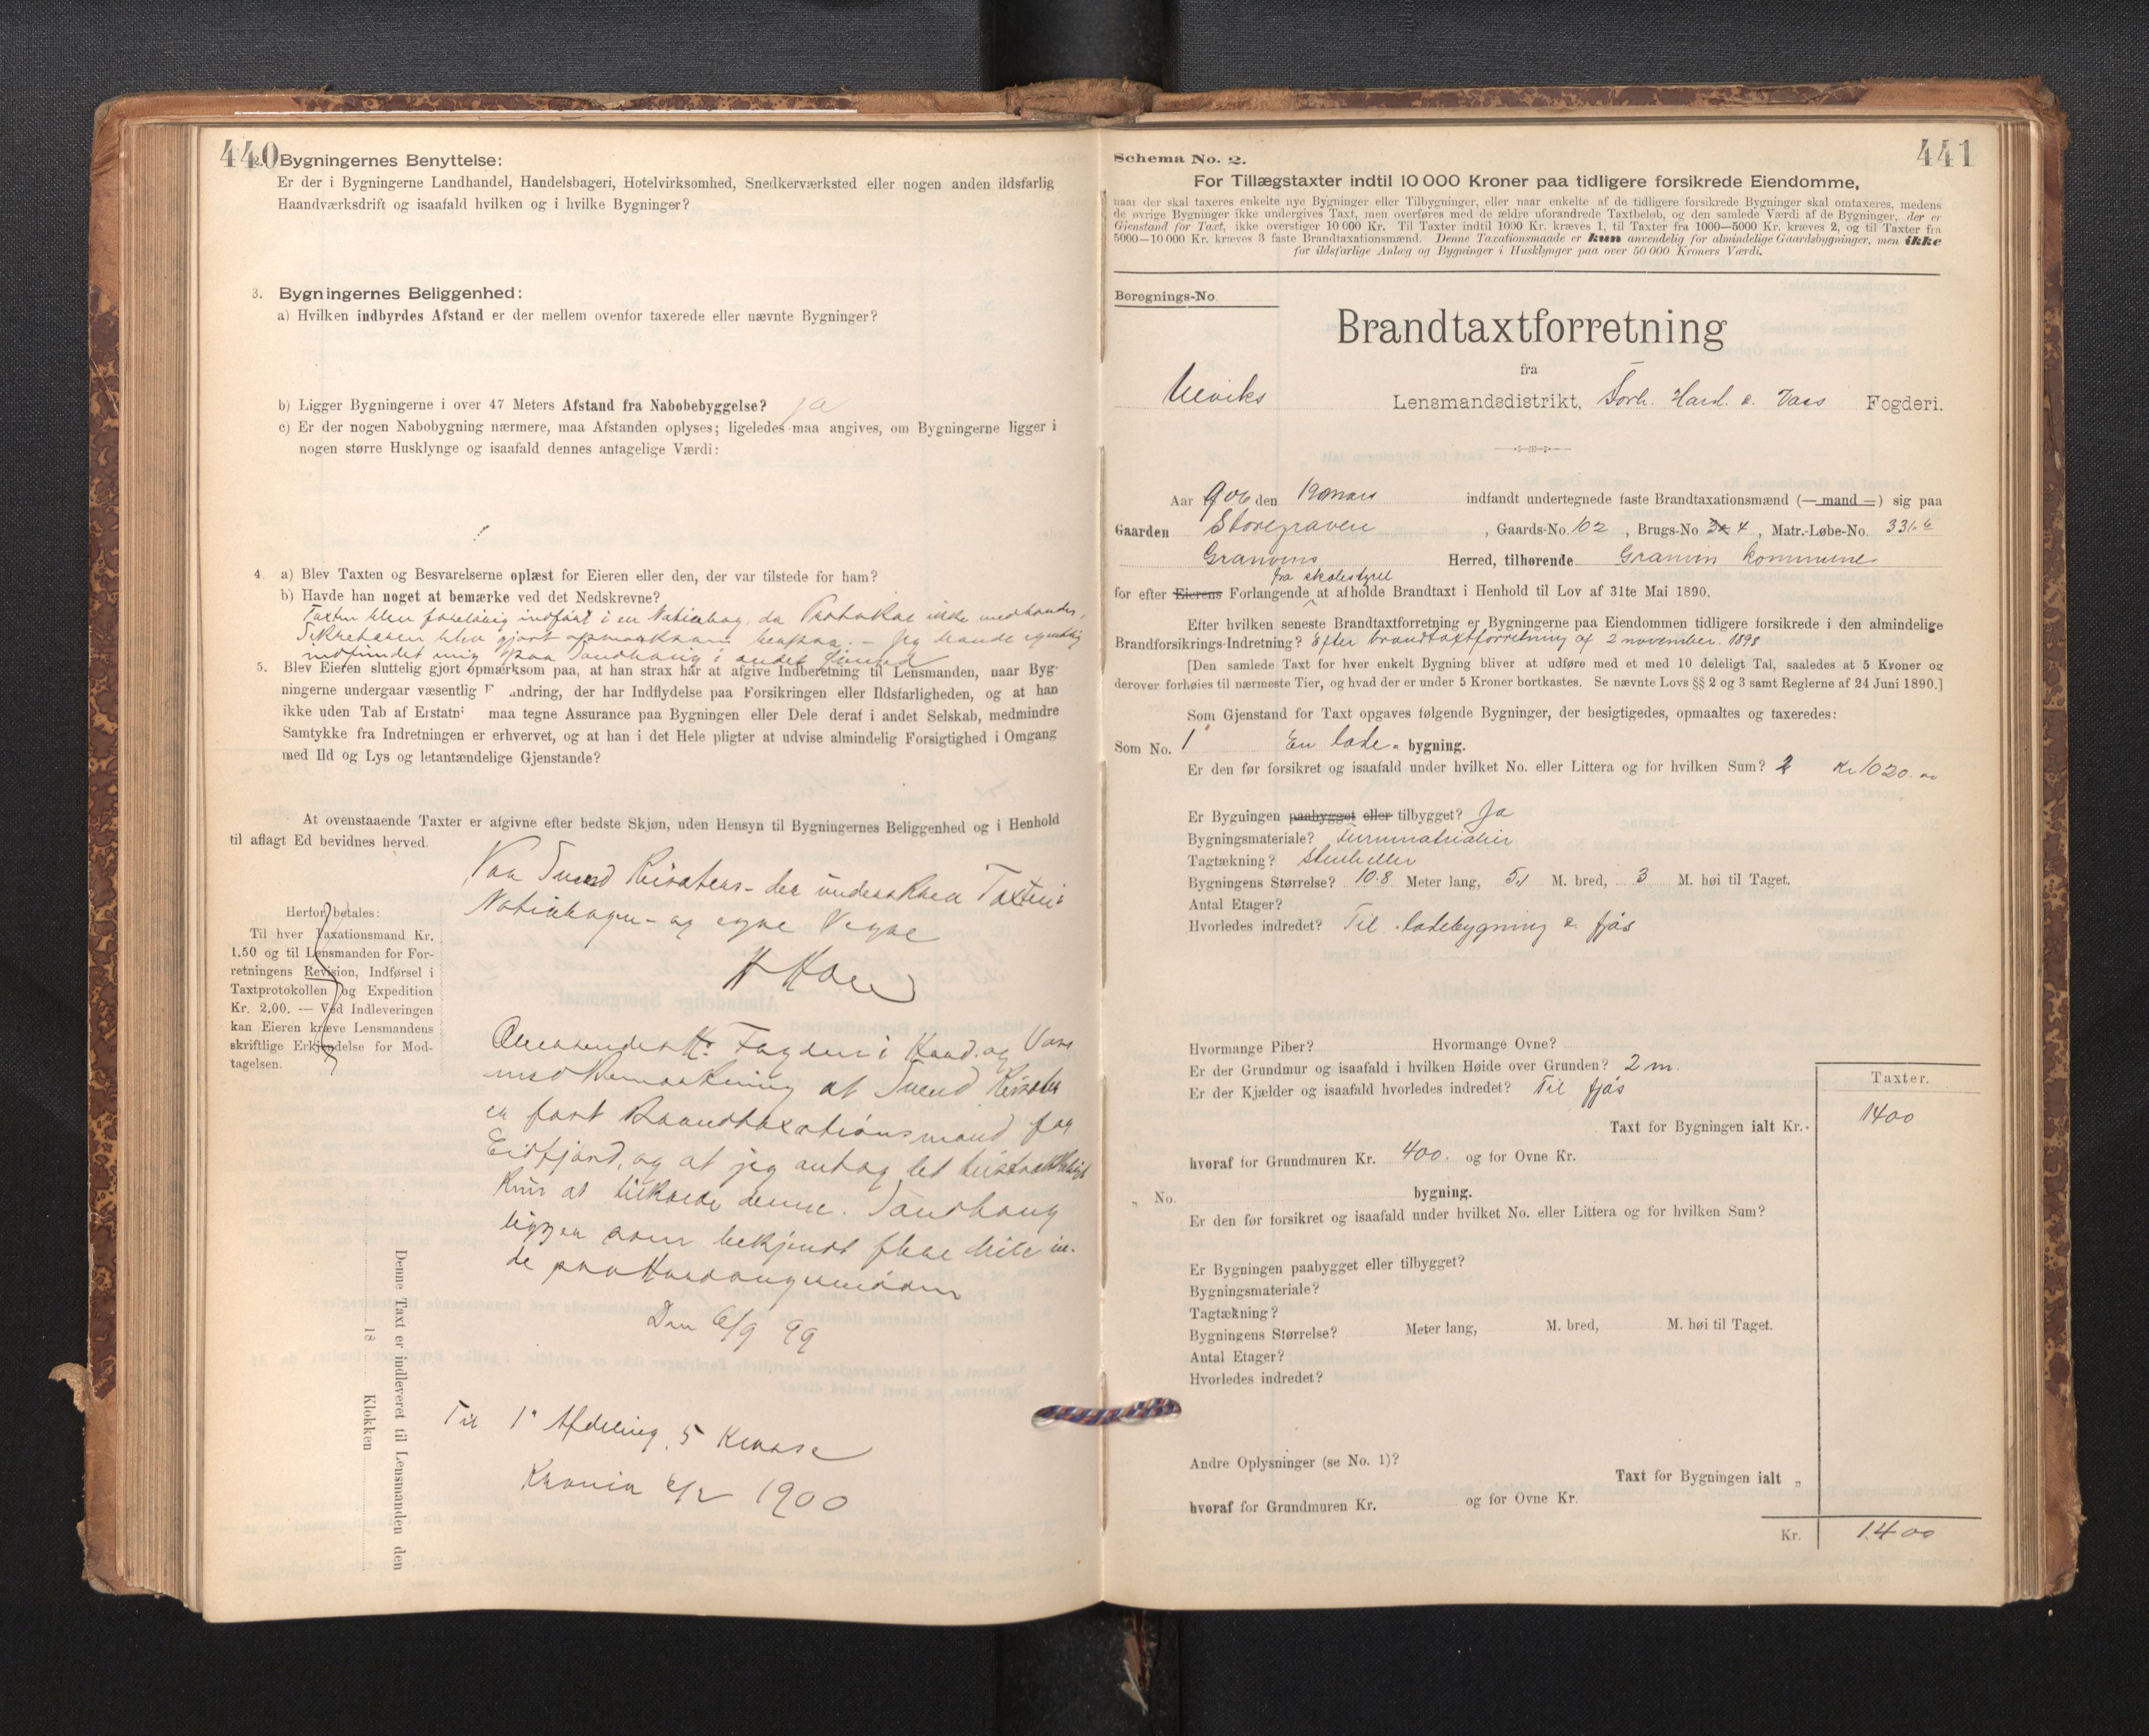 440
2. Bygningernes Benyttelse:
Er der i Bygningerne Landhandel, Handelsbageri, Hotelvirksomhed, Snedkerværksted eller nogen anden ildsfarlig
Haandværksdrift og isaafald hvilken og i hvilke Bygninger?
3. Bygningernes Beliggenhed:
a) Hvilken indbyrdes Afstand er der mellem ovenfor taxerede eller nævnte Bygninger?
b) Ligger Bygningerne i over 47 Meters Afstand fra Nabobebyggelse? ja
c) Er der nogen Nabobygning nærmere, maa Afstanden oplyses; ligeledes maa angives, om Bygningerne ligger i
nogen større Husklynge og isaafald dennes antagelige Værdi:
4. a) Blev Taxten og Besvarelserne oplæst for Eieren eller den, der var tilstede for ham?
b) Havde han noget at bemærke ved det Nedskrevne?
Taxten blev foreløbig indført i en Notisbog, da Protokol ikke medhavdes.
blev gjort opmærksom herpaa. – Jeg havde
indfundet mig paa Sandhaug i andet
5. Blev Eieren sluttelig gjort opmærksom paa, at han strax har at afgive Indberetning til Lensmanden, naar Byg-
ningerne undergaar væsentlig F andring, der har Indflydelse paa Forsikringen eller Ildsfarligheden, og at han
ikke uden Tab af Erstatn maa tegne Assurance paa Bygningen eller Dele deraf i andet Selskab, medmindre
Samtykke fra Indretningen er erhvervet, og at han i det Hele pligter at udvise almindelig Forsigtighed i Omgang
med Ild og Lys og letantændelige Gjenstande?
At ovenstaaende Taxter er afgivne efter bedste Skjøn, uden Hensyn til Bygningernes Beliggenhed og i Henhold
til aflagt Ed bevidnes herved.
Paa Svend der underskrev Taxten i
Notisbogen – og egne Vegne
Herfor betales:
Til hver Taxationsmand Kr.
1.50 og til Lensmanden for For-
retningens Revision, Indførsel i
Taxtprotokollen og Expedition
Kr. 2.00. — Ved Indleveringen
kan Eieren kræve Lensmandens
skriftlige Erkjendelse for Mod-
tagelsen.
Hr. Fogden i Hard. og Voss
med Bemærkning at Svend
er fast Brandtaxationsmand for
Eidfjord, og at jeg antog det
kun at tilkalde denne. Sandhaug
ligger som bekjendt
de paa
Den 6/9 99
Til 1. Afdeling, 5 Klasse
1900
Denne Taxt er indleveret til Lensmanden den
18 Klokken
441
Schema No. 2.
For Tillægstaxter indtil 10 000 Kroner paa tidligere forsikrede Eiendomme,
naar der skal taxeres enkelte nye Bygninger eller Tilbygninger, eller naar enkelte af de tidligere forsikrede Bygninger skal omtaxeres, medens
de øvrige Bygninger ikke undergives Taxt, men overføres med de ældre uforandrede Taxtbeløb, og den samlede Værdi af de Bygninger, der er
Gjenstand for Taxt, ikke overstiger 10 000 Kr. Til Taxter indtil 1000 Kr. kræves 1, til Taxter fra 1000—5000 Kr. kræves 2, og til Taxter fra
5000—10 000 Kr. kræves 3 faste Brandtaxationsmænd. Denne Taxationsmaade er kun anvendelig for almindelige Gaardsbygninger, men ikke
for ildsfarlige Anlæg og Bygninger i Husklynger paa over 50 000 Kroners Værdi.
Beregnings-No.
Brandtaxtforretning
fra
Ulviks Lensmandsdistrikt, Hard. & Voss Fogderi.
Aar 906 den 19 mars indfandt undertegnede faste Brandtaxationsmænd (— mand —) sig paa
Gaarden Storegraven, Gaards-No. 102, Brugs-No 4, Matr.-Løbe-No. 331.6
Granvins Herred, tilhørende Granvin kommune
fra skolestyret
for efter Eierens Forlangende at afholde Brandtaxt i Henhold til Lov af 31te Mai 1890.
Efter hvilken seneste Brandtaxtforretning er Bygningerne paa Eiendommen tidligere forsikrede i den almindelige
Brandforsikrings-Indretning? Efter brandtaxtforretning af 2 november. 1898
[Den samlede Taxt for hver enkelt Bygning bliver at udføre med et med 10 deleligt Tal, saaledes at 5 Kroner og
derover forhøies til nærmeste Tier, og hvad der er under 5 Kroner bortkastes. Se nævnte Lovs §§ 2 og 3 samt Reglerne af 24 Juni 1890.]
Som Gjenstand for Taxt opgaves følgende Bygninger, der besigtigedes, opmaaltes og taxeredes:
Som No. 1 En lade- bygning.
Er den før forsikret og isaafald under hvilket No. eller Littera og for hvilken Sum? 2 Kr 1020.00
Er Bygningen paabygget eller tilbygget? Ja
Bygningsmateriale?
Tagtækning? Stenheller
Bygningens Størrelse? 10.8 Meter lang, 5.1 M. bred, 3 M. høi til Taget.
Antal Etager?
Hvorledes indredet? Til ladebygning & fjøs
Hvormange Piber? Hvormange Ovne?
Er der Grundmur og isaafald i hvilken Høide over Grunden? 2 m.
Er der Kjælder og isaafald hvorledes indredet? Til fjøs
Taxter.
Taxt for Bygningen ialt Kr. 1400
hvoraf for Grundmuren Kr. 400. og for Ovne Kr.
„ No. bygning.
Er den før forsikret og isaafald under hvilket No. eller Littera og for hvilken Sum?
Er Bygningen paabygget eller tilbygget?
Bygningsmateriale?
Tagtækning?
Bygningens Størrelse? Meter lang, M. bred, M. høi til Taget.
Antal Etager?
Hvorledes indredet?
Andre Oplysninger (se No. 1)?
Taxt for Bygningen ialt „
hvoraf for Grundmuren Kr. og for Ovne Kr.
Kr. 1400